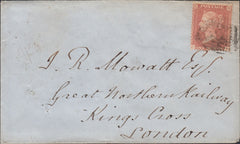 J. R. Mowatt Esq.
Great Northern Railway
Kings Cross
London